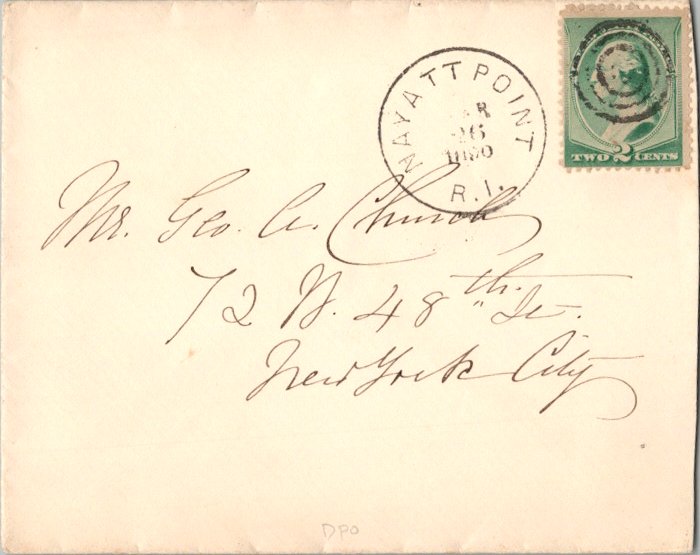 NAYATT POINT
16
R.I.
TWO 2 CENTS
Mr. Geo. A. Church
72 W. 48th St.
New York City
DPO